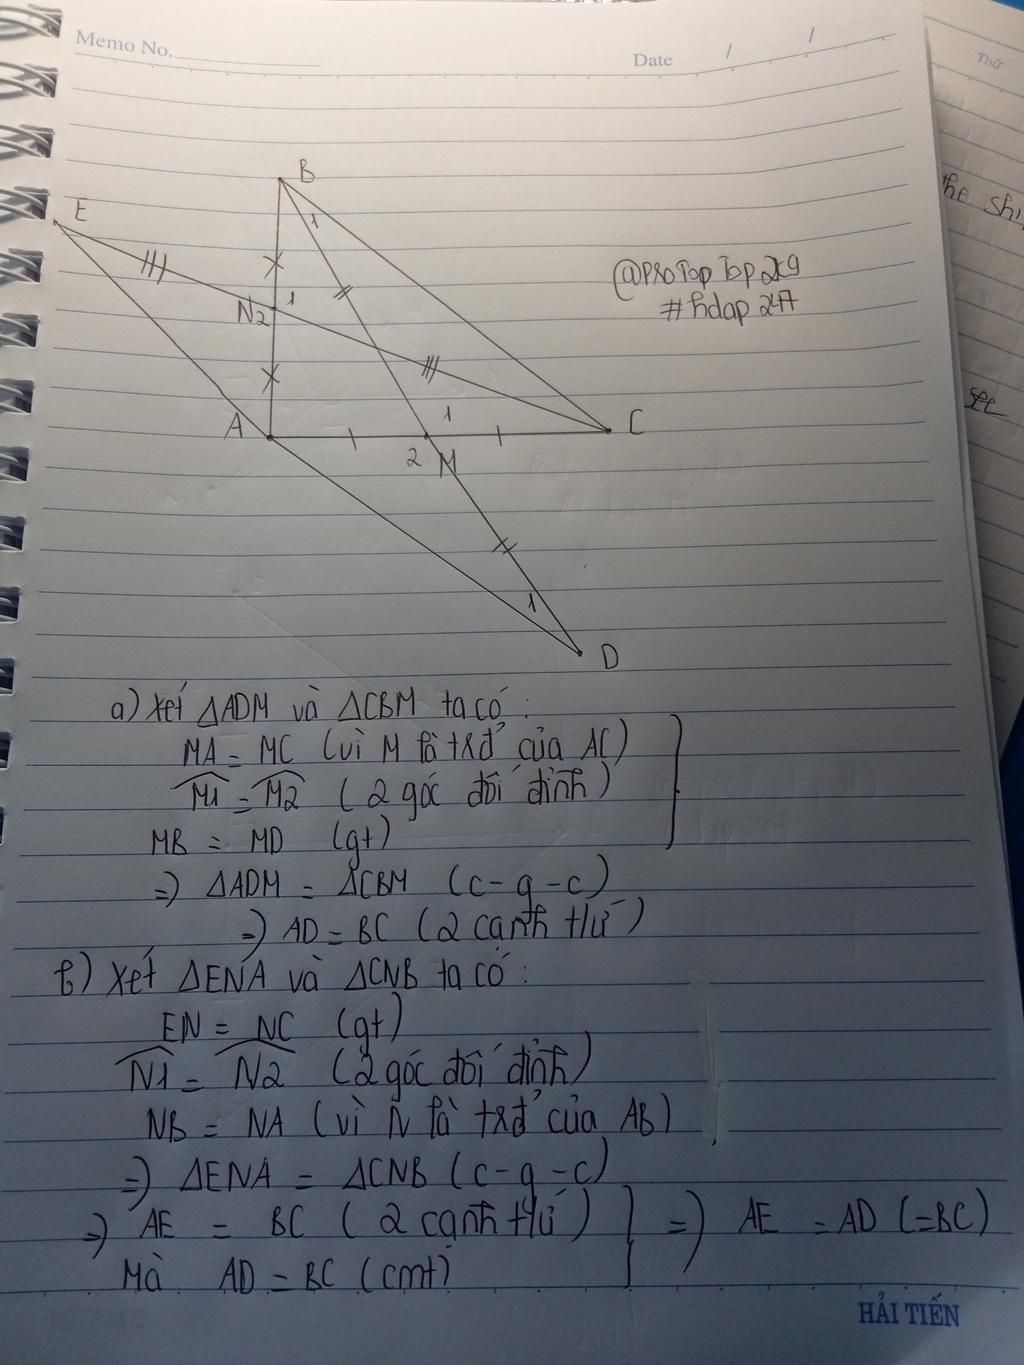 Memo No.
Date / /
Thứ
B
E
1
the shi
@ProTopTop2k9
N2 1
#hdap247
see
1
A
C
2
M
1
D
a) Xét ΔADM và ΔCBM ta có :
MA = MC (vì M là trđ của AC)
M1 = M2 (2 góc đối đỉnh)
MB = MD (gt)
=> ΔADM = ΔCBM (c-g-c)
=> AD = BC (2 cạnh t/ứ)
b) Xét ΔENA và ΔCNB ta có :
EN = NC (gt)
N1 = N2 (2 góc đối đỉnh)
NB = NA (vì N là trđ của AB)
=> ΔENA = ΔCNB (c-g-c)
=> AE = BC (2 cạnh t/ứ) => AE = AD (=BC)
Mà AD = BC (cmt)
HẢI TIẾN